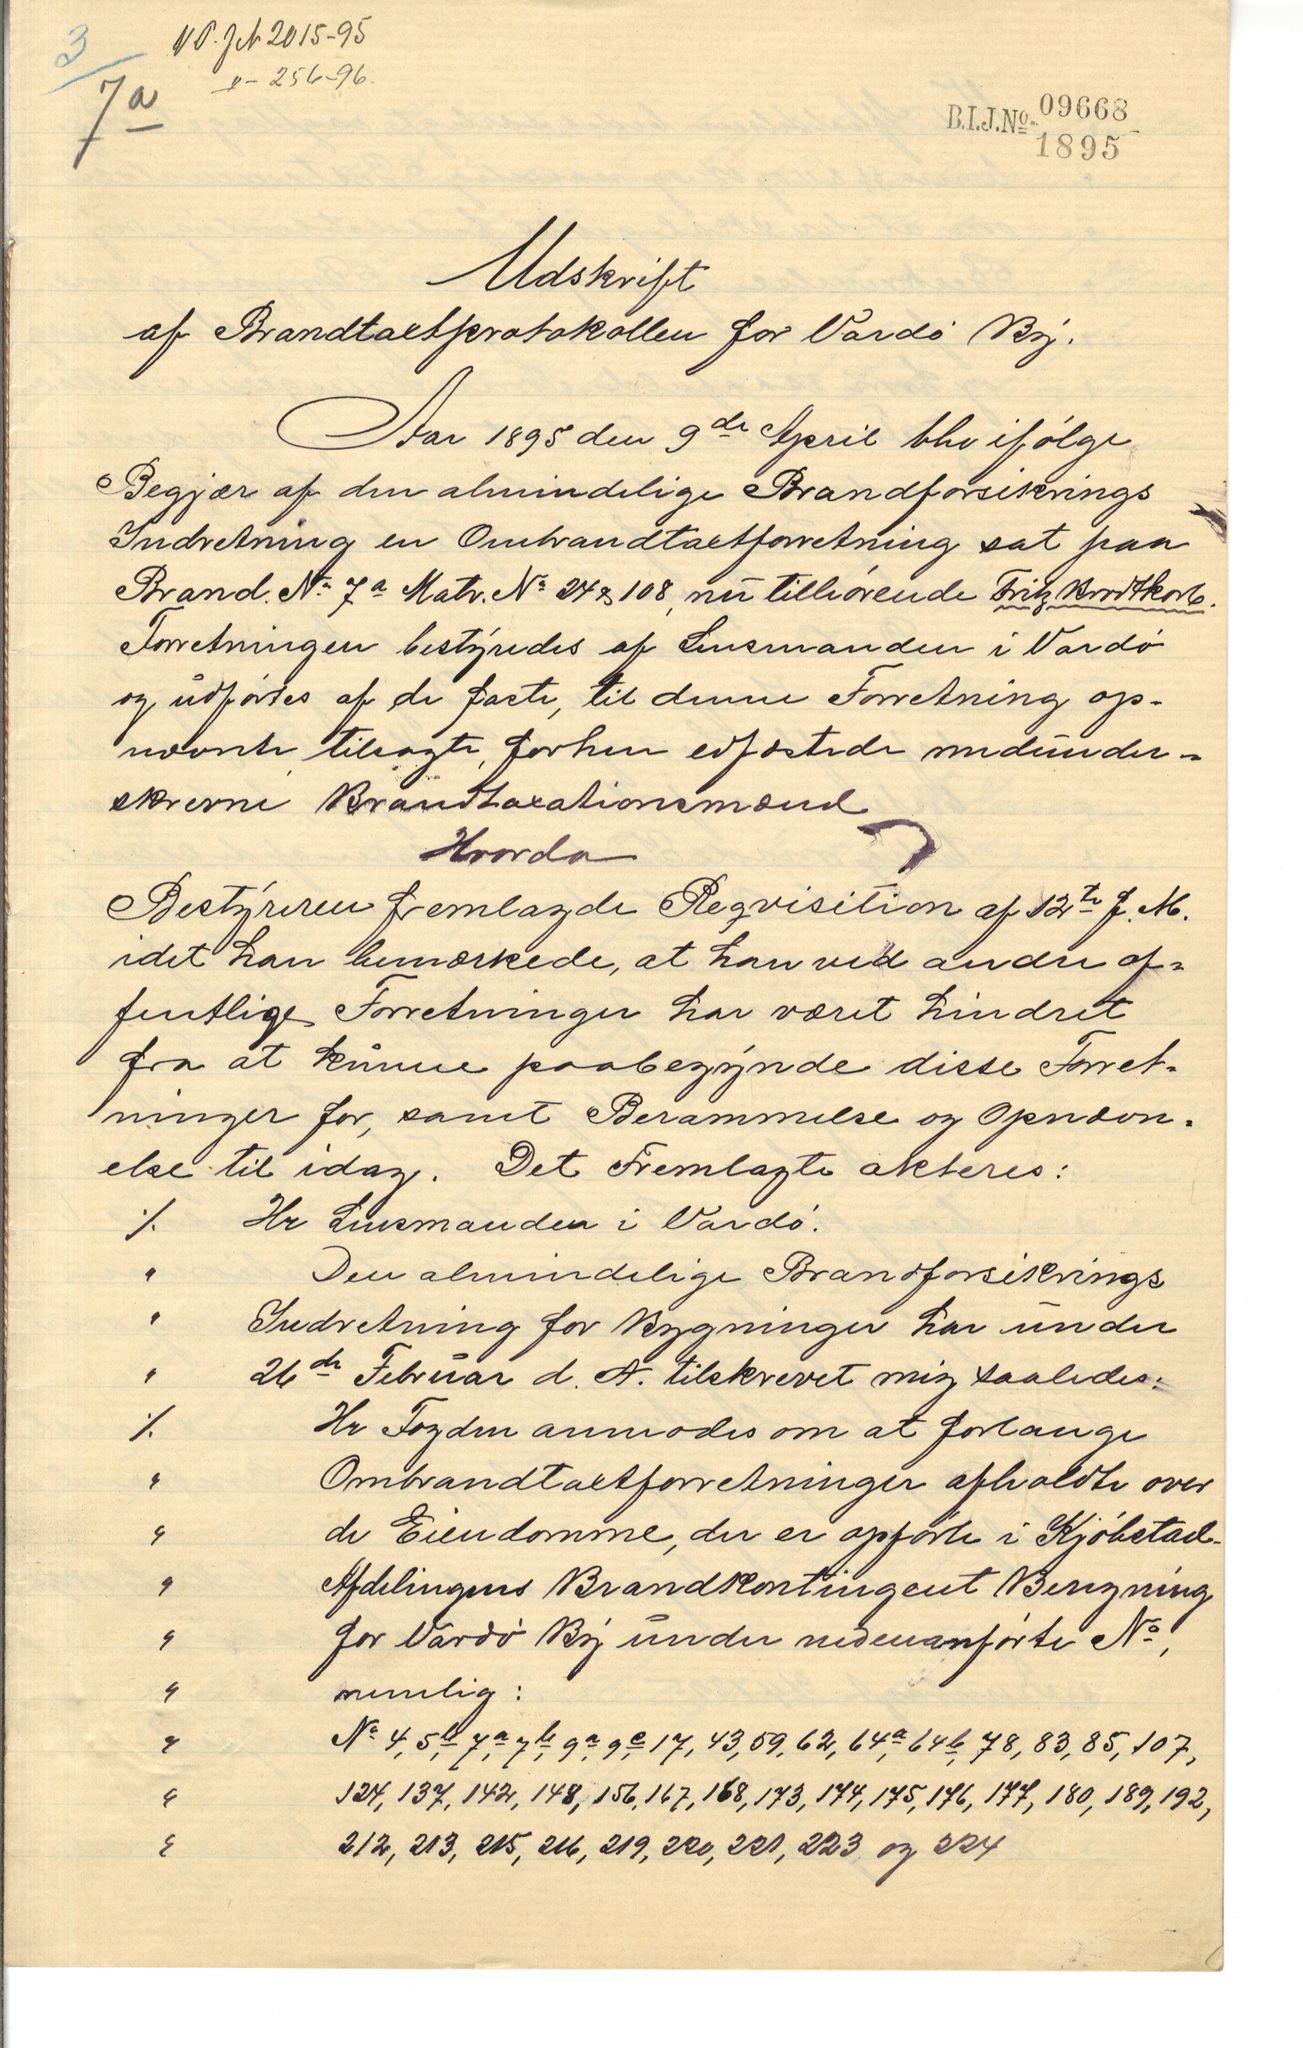 3
7a
N.P. Jn 2015-95
"- 256-96.
B.I.J.No 09668
1895
Udskrift
af Brandtaxtprotokollen for Vardö By.
Aar 1895 den 9de April blev ifölge
Begjær af den almindelige Brandforsikrings
Indretning en Ombrandtaxtforretning sat paa
Brand. No 7a Matr. No 24 & 108, nu tilhörende Fritz Brodtkorb.
Forretningen bestyredes af Lensmanden i Vardö
og udförtes af de faste, til denne Forretning op-
nævnte tilsagte, forhen edfæstede medunder-
skrevne Brandtaxationsmænd
Hvorda
Bestyreren fremlagde Reqvisition af 12te f. M.
idet han bemærkede, at han ved andre of-
fentlige Forretninger har været hindret
fra at kunne paabegynde disse Forret-
ninger för, samt Berammelse og Opnævn-
else til idag. Det Fremlagte akteres:
·/. Hr Lensmanden i Vardö.
" Den almindelige Brandforsikrings
" Indretning for Bygninger har under
" 26de Februar d. A. tilskrevet mig saaledes:
·/. Hr Fogden anmodes om at forlange
" Ombrandtaxtforretninger afholdte over
" de Eiendomme, der er opförte i Kjöbstad-
" Afdelingens Brandkontingent Beregning
" for Vardö By under nedenanförte No,
" nemlig:
" No 4, 5b, 7a, 7b, 9a, 9c, 17, 43, 59, 62, 64a, 64b, 78, 83, 85, 107,
" 124, 137, 142, 148, 156, 167, 168, 173, 174, 175, 176, 177, 180, 189, 192,
" 212, 213, 215, 216, 219, 220, 221, 223 og 224